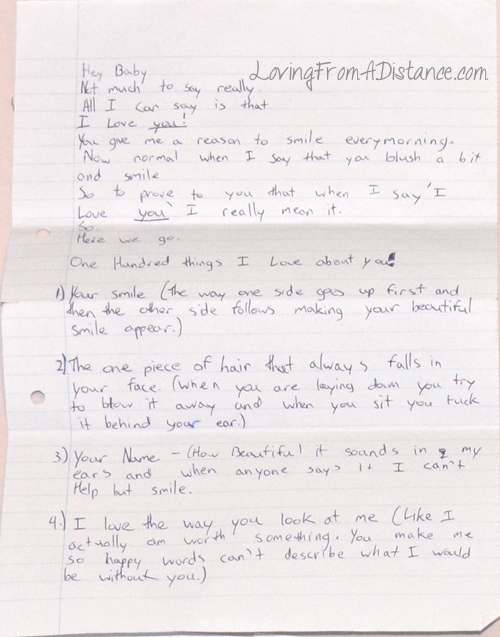 LovingFromADistance.com
Hey Baby
Not much to say really.
All I can say is that
I Love you!
You give me a reason to smile everymorning.
Now normal when I say that you blush a bit
and smile
So to prove to you that when I say 'I
Love you' I really mean it.
So.
Here we go.
One Hundred things I Love about you!
1) Your smile (The way one side goes up first and
then the other side follows making your beautiful
smile appear.)
2) The one piece of hair that always falls in
your face. (when you are laying down you try
to blow it away and when you sit you tuck
it behind your ear.)
3.) Your Name - (How Beautiful it sounds in my
ears and when anyone says it I can't
Help but smile.
4.) I love the way you look at me (Like I
actually am worth something. You make me
so happy words can't describe what I would
be without you.)